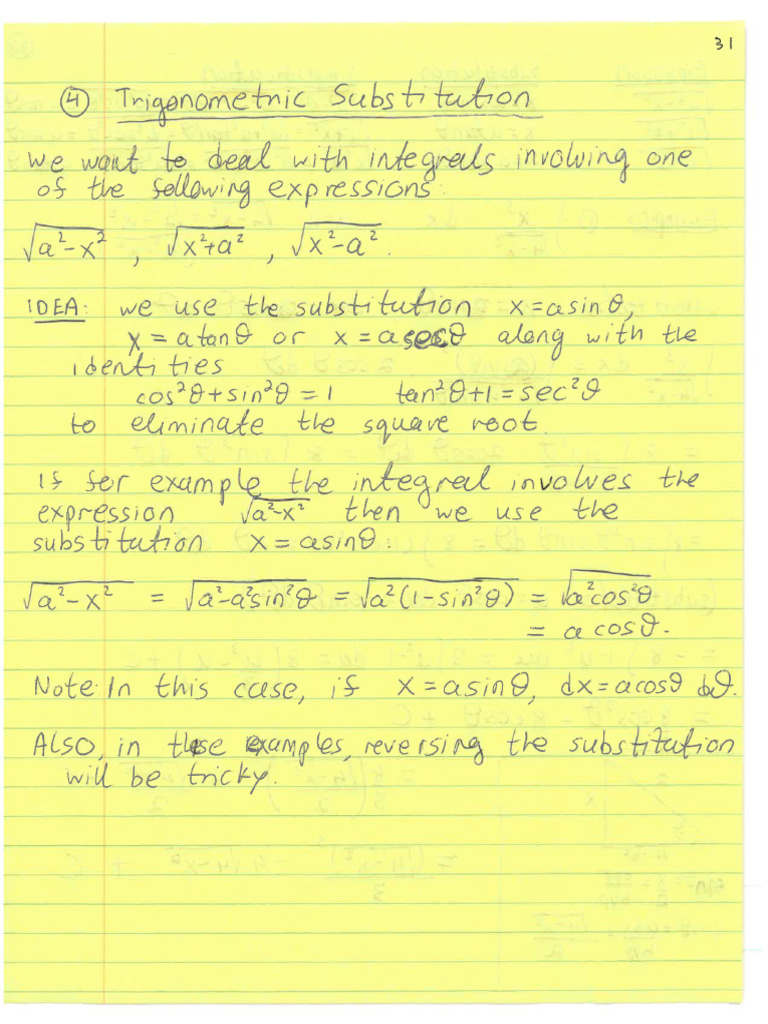 31
④ Trigonometric Substitution
We want to deal with integrals involving one
of the following expressions:
√(a²-x²) , √(x²+a²) , √(x²-a²) .
IDEA: we use the substitution x=asinθ,
x = atanθ or x = asecθ along with the
identities
cos²θ+sin²θ=1 tan²θ+1=sec²θ
to eliminate the square root.
If for example the integral involves the
expression √(a²-x²) then we use the
substitution x=asinθ:
√(a²-x²) = √(a²-a²sin²θ) = √(a²(1-sin²θ)) = √(a²cos²θ)
= a cosθ.
Note: In this case, if x=asinθ, dx=acosθ dθ.
ALSO, in these examples, reversing the substitution
will be tricky.